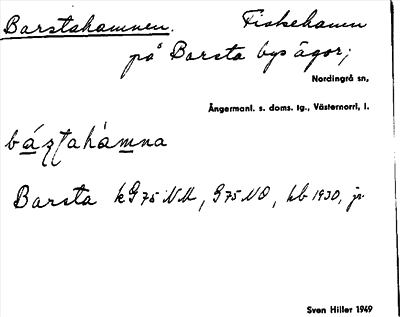 Barstahamnen. Fiskehamn
på Barsta bys ägor;
Nordingrå sn,
Ångermanl. s. doms. tg., Västernorrl. l.
Barsta kG75NV, G75NO, hb 1930, jr
Sven Hiller 1949